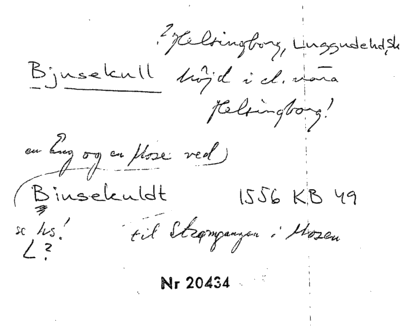 ? Helsingborg, Luggudehd, Sk
Bjusekull höjd i d. nära
Helsingborg!
en Eng og en Mose ved
Biusekuldt 1556 KB 49
se hs! til Strømgangen i Mosen
L?
Nr 20434